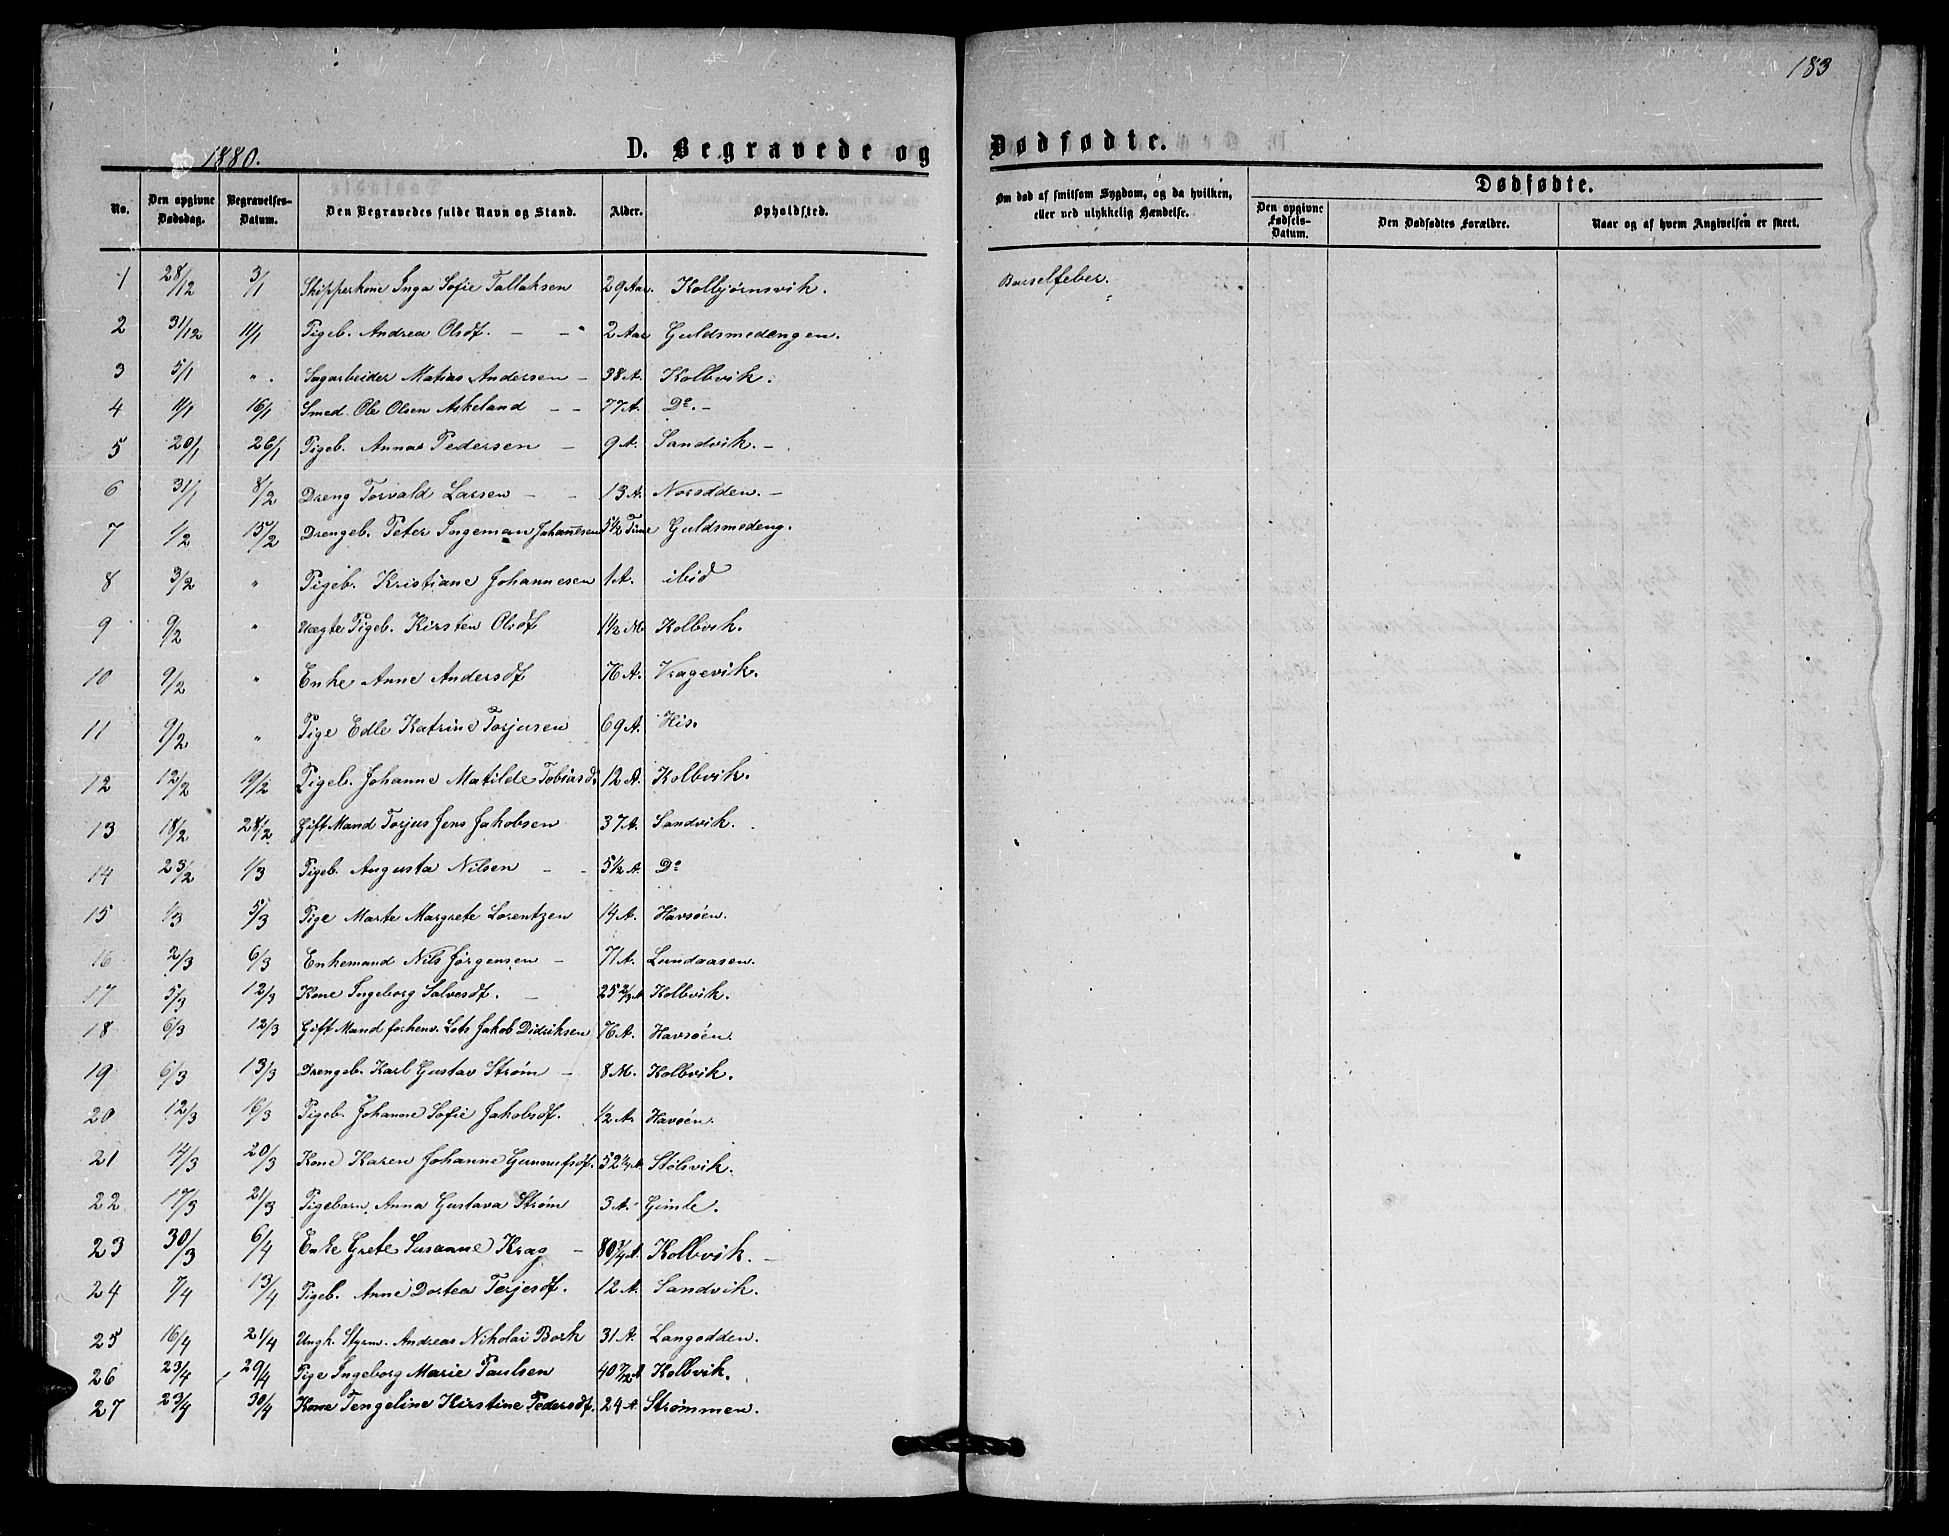 183
1880.
D. Begravede og Dødfødte.
No. Den opgivne Dødsdag. Begravelses-Datum. Den Begravedes fulde Navn og Stand. Alder. Opholdsted. Om død af smitsom Sygdom, og da hvilken, eller ved ulykkelig Hændelse. Dødfødte. Den opgivne Fødsels-Datum. Den Dødfødtes Forældre. Naar og af hvem Angivelsen er skeet.
1 28/12 3/1 Skipperkone Inga Sofie Tallaksen 29 Aar. Kolbjørnsvik. Barselfeber.
2 31/12 11/1 Pigeb. Andrea Olsdt. — — 2 Aar Guldsmedengen.
3 5/1 ". Sagarbeider Matias Andersen — 38 A. Kolbvik.
4 11/1 16/1 Smed. Ole Olsen Askeland — — 77 A. Do. —
5 20/1 26/1 Pigeb. Anna Pedersen — 9 A. Sandvik. —
6 31/1 8/2 Dreng Torvald Larsen — — 13 A. Norodden. —
7 1/2 15/2 Drengeb. Peter Ingeman Johannesen 5 1/2 Time Guldsmedeng.
8 3/2 " Pigeb. Kristiane Johannesen 1 A. ibid
9 9/2 " Uægte Pigeb. Kirsten Olsdt 1 1/2 M. Kolbvik.
10 9/2 " Enke Anne Andersdt 76 A. Vragevik.
11 9/2 " Pige Edle Katrine Torjusen 69 A. His.
12 12/2 19/2 Pigeb. Johanne Matilde Tobiasd. 12 A. Kolbvik.
13 18/2 28/2 Gift Mand Torjus Jens Jakobsen 37 A. Sandvik.
14 23/2 1/3 Pigeb. Augusta Nilsen — — 5 1/2 A. Do
15 1/3 5/3 Pige Marte Margrete Lorentzen 14 A. Havsøen.
16 2/3 6/3 Enkemand Nils Jørgensen — 71 A. Lundaasen.
17 5/3 12/3 Kone Ingeborg Salvesdt. — 25 2/3 A Kolbvik.
18 6/3 12/3 Gift Mand forhenv. Lots Jakob Didriksen 76 A. Havsøen.
19 6/3 13/3 Drengeb. Karl Gustav Strøm — 8 M. Kolbvik.
20 12/3 18/3 Pigeb. Johanne Sofie Jakobsdt. 1/2 A. Havøen.
21 14/3 20/3 Kone Karen Johanne Gunnufsdt. 52 A Stølsvik.
22 17/3 21/3 Pigebarn Anna Gustava Strøm 3 A. Gimle.
23 30/3 6/4 Enke Grete Susanne Krag — 80 3/4 A. Kolbvik. —
24 7/4 13/4 Pigeb. Anne Dortea Terjesdt. 12 A. Sandvik.
25 16/4 21/4 Ungk. Styrm. Andreas Nikolai Bork 31 A. Langodden.
26 23/4 29/4 Pige Ingeborg Marie Paulsen 40 7/12 A Kolbvik.
27 23/4 30/4 Kone Tengeline Kirstine Pedersdt. 24 A Strømmen.